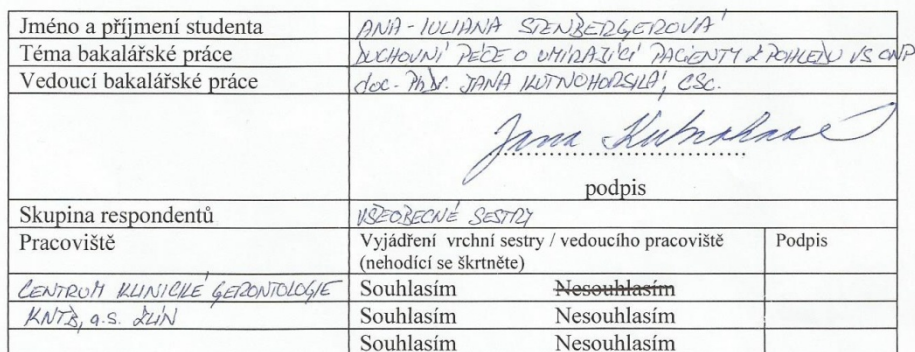 Jméno a příjmení studenta ANA-IULIANA SPENBERGEROVÁ
Téma bakalářské práce DUCHOVNÍ PÉČE O UMÍRAJÍCÍ PACIENTY Z POHLEDU VS ONP
Vedoucí bakalářské práce doc. PhDr. JANA KUTNOHORSKÁ, CSc.
Jana Kutnohorská
podpis
Skupina respondentů VŠEOBECNÉ SESTRY
Pracoviště Vyjádření vrchní sestry / vedoucího pracoviště Podpis
(nehodící se škrtněte)
CENTRUM KLINICKÉ GERONTOLOGIE Souhlasím Nesouhlasím
KNTB, a.s. ZLÍN Souhlasím Nesouhlasím
Souhlasím Nesouhlasím